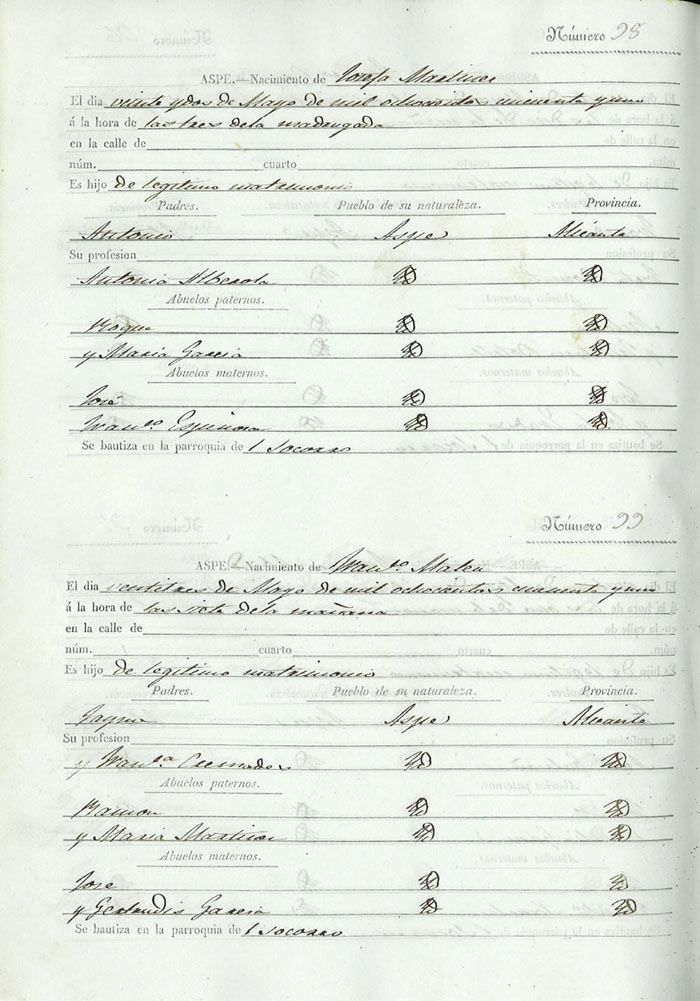 Número 98
ASPE.—Nacimiento de Josefa Martinez
El dia veinte y dos de Mayo de mil ochocientos cincuenta y uno
á la hora de las tres de la madrugada
en la calle de
núm. cuarto
Es hijo de legitimo matrimonio
Padres. Pueblo de su naturaleza. Provincia.
Antonio Aspe Alicante
Su profesion
Antonia Alberola
Abuelos paternos.
Roque
y Maria Garcia
Abuelos maternos.
José
Fran.ca Espinosa
Se bautiza en la parroquia de l Socorro
Número 99
ASPE.—Nacimiento de Fran.co Mateu
El dia ventitres de Mayo de mil ochocientos cincuenta y uno
á la hora de las siete de la mañana
en la calle de
núm. cuarto
Es hijo de legitimo matrimonio
Padres. Pueblo de su naturaleza. Provincia.
Jayme Aspe Alicante
Su profesion
y Fran.ca Cremades
Abuelos paternos.
Ramon
y Maria Martinez
Abuelos maternos.
Jose
y Gertrudis Garcia
Se bautiza en la parroquia de l Socorro